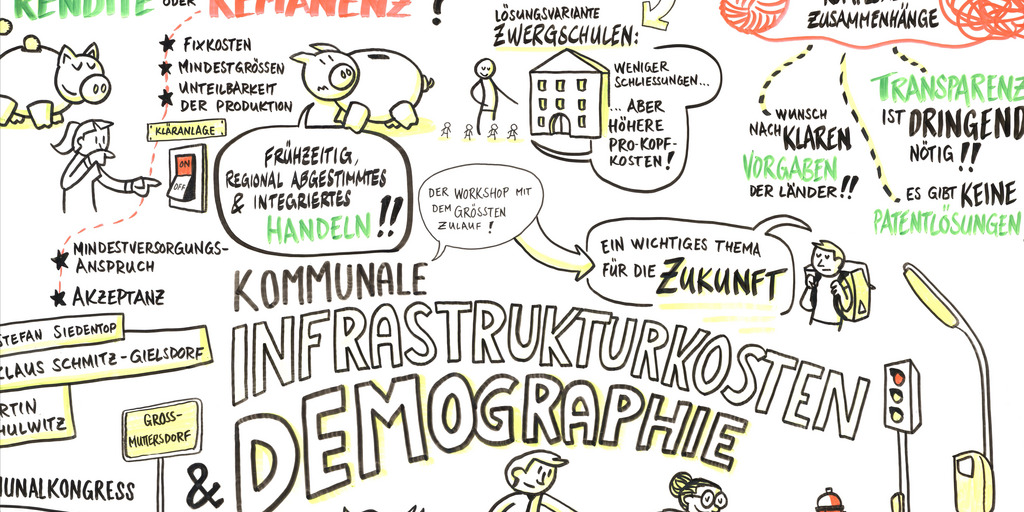 RENDITE ODER REMANENZ?
FIXKOSTEN
MINDESTGRÖSSEN
UNTEILBARKEIT
DER PRODUKTION
KLÄRANLAGE
ON
OFF
MINDESTVERSORGUNGS-
ANSPRUCH
AKZEPTANZ
FRÜHZEITIG,
REGIONAL ABGESTIMMTES
& INTEGRIERTES
HANDELN!!
LÖSUNGSVARIANTE
ZWERGSCHULEN:
WENIGER
SCHLIESSUNGEN...
... ABER
HÖHERE
PRO-KOPF-
KOSTEN!
ZUSAMMENHÄNGE
WUNSCH
NACH KLAREN
VORGABEN
DER LÄNDER!!
TRANSPARENZ
IST DRINGEND
NÖTIG!!
ES GIBT KEINE
PATENTLÖSUNGEN
DER WORKSHOP MIT
DEM GRÖSSTEN
ZULAUF!
EIN WICHTIGES THEMA
FÜR DIE ZUKUNFT
KOMMUNALE
INFRASTRUKTURKOSTEN
& DEMOGRAPHIE
STEFAN SIEDENTOP
CLAUS SCHMITZ-GIELSDORF
RTIN
HULWITZ
GROSS-
MUTTERSDORF
UNALKONGRESS